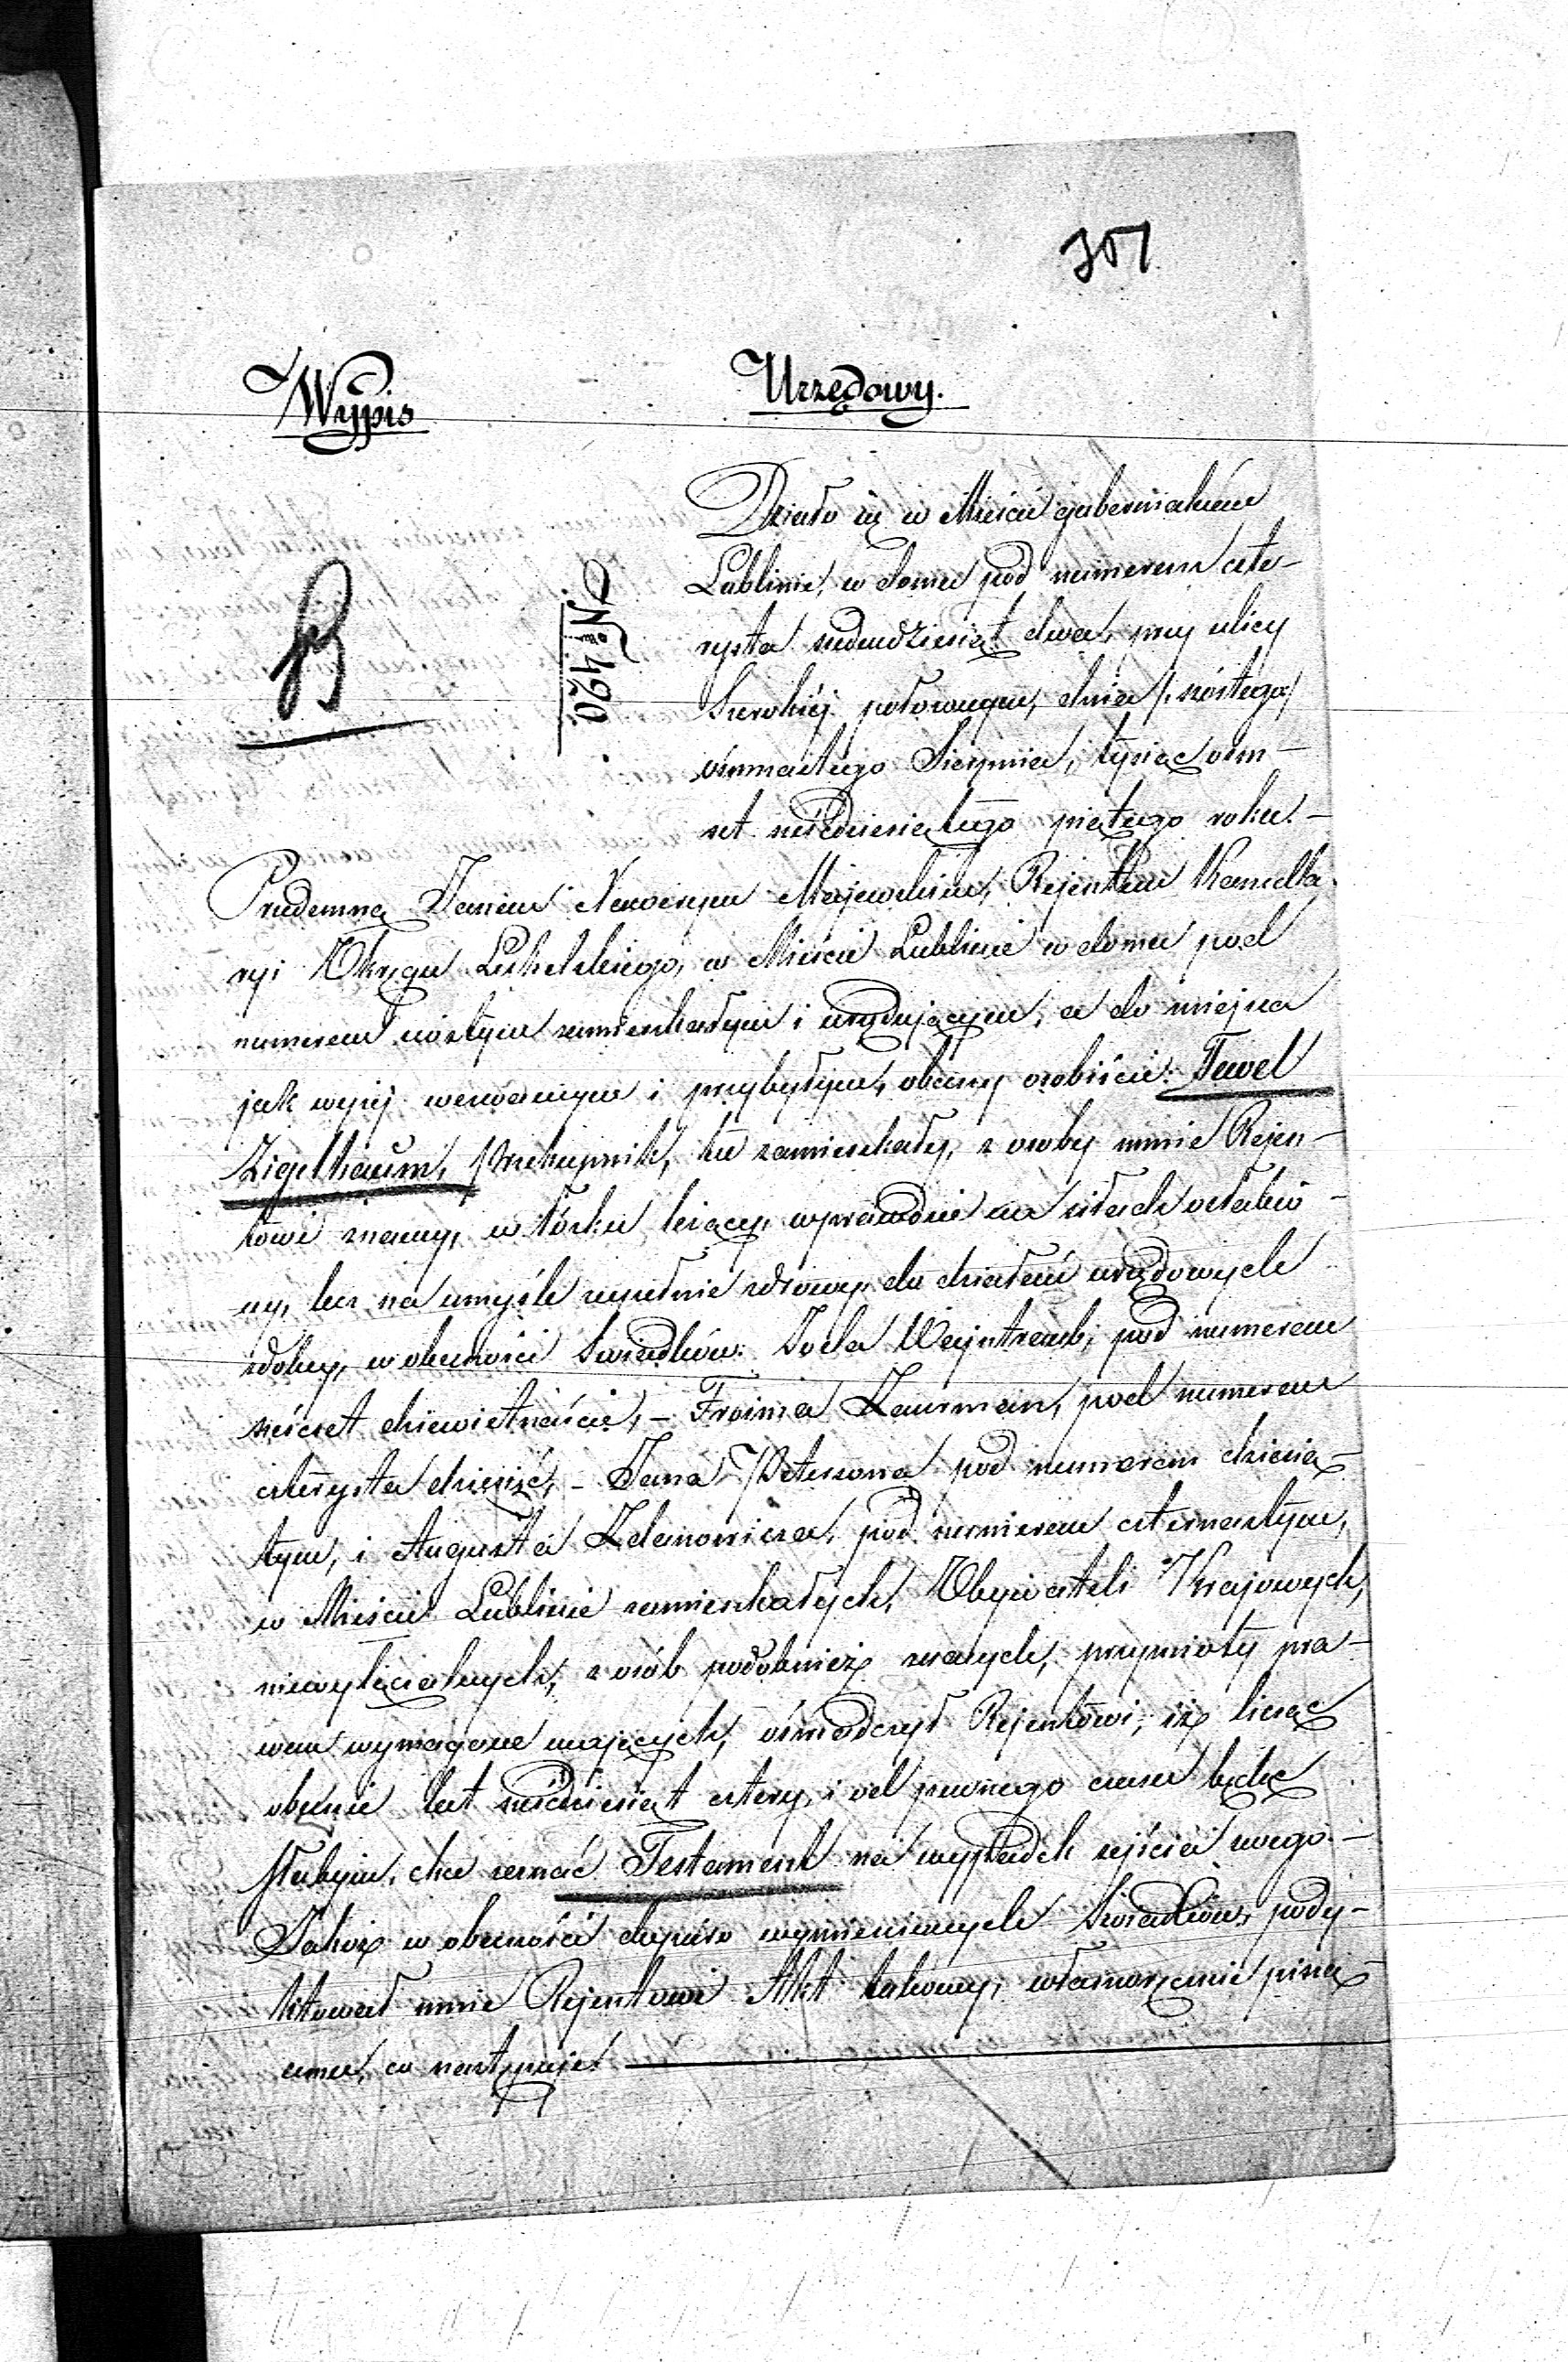 301
Wypis Urzędowy.
B
№ 420
Działo się w Mieście gubernialném
Lublinie, w domu pod numerem czte-
rysta siedemdziesiąt dwa, przy ulicy
Szerokiéj położonym, dnia /szóstego/
ósmnastego Sierpnia, tysiąc ośm-
set sześćdziesiątego piątego roku.-
Przedemną Janem Nawerym Majewskim, Rejentem Kancella-
ryi Okręgu Lubelskiego, w Mieście Lublinie w domu pod
numerem szóstym zamieszkałym i urzędującym, a do miejsca
jak wyżéj wezwanym i przybyłym, obecny osobiście: Tewel
Zigelbaum, Przekupnik, tu zamieszkały, z osoby mnie Rejen-
towi znany, w łóżku leżący, wprawdzie na siłach osłabio-
ny, lecz na umyśle zupełnie zdrowy, do działań urzędowych
zdolny, w obecności Świadków: Josla Wajntraub, pod numerem
sześćset dziewiętnaście, - Froima Zausman, pod numerem
czterysta dziesięć, - Jana Petersona pod numerem dziesią-
tym, i Augusta Zdanowicza, pod numerem czternastym,
w Mieście Lublinie zamieszkałych, Obywateli Krajowych,
niewyłączalnych, z osób podobnież znanych, przymioty pra-
wem wymagane mających, oświadczył Rejentowi, iż licząc
obecnie lat sześćdziesiąt cztery, i od pewnego czasu będąc
słabym, chce zeznać Testament na wypadek zejścia swego.-
Jakoż w obecności dopiéro wymienionych Świadków, pody-
ktował mnie Rejentowi Akt takowy, własnoręcznie piszą-
cemu, co następuje: